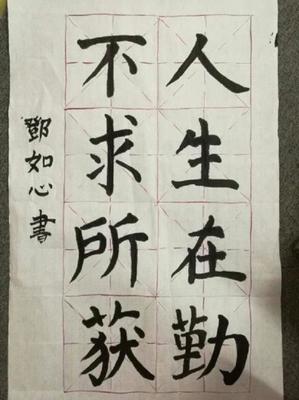 人生在勤
不求所获
鄧如心書